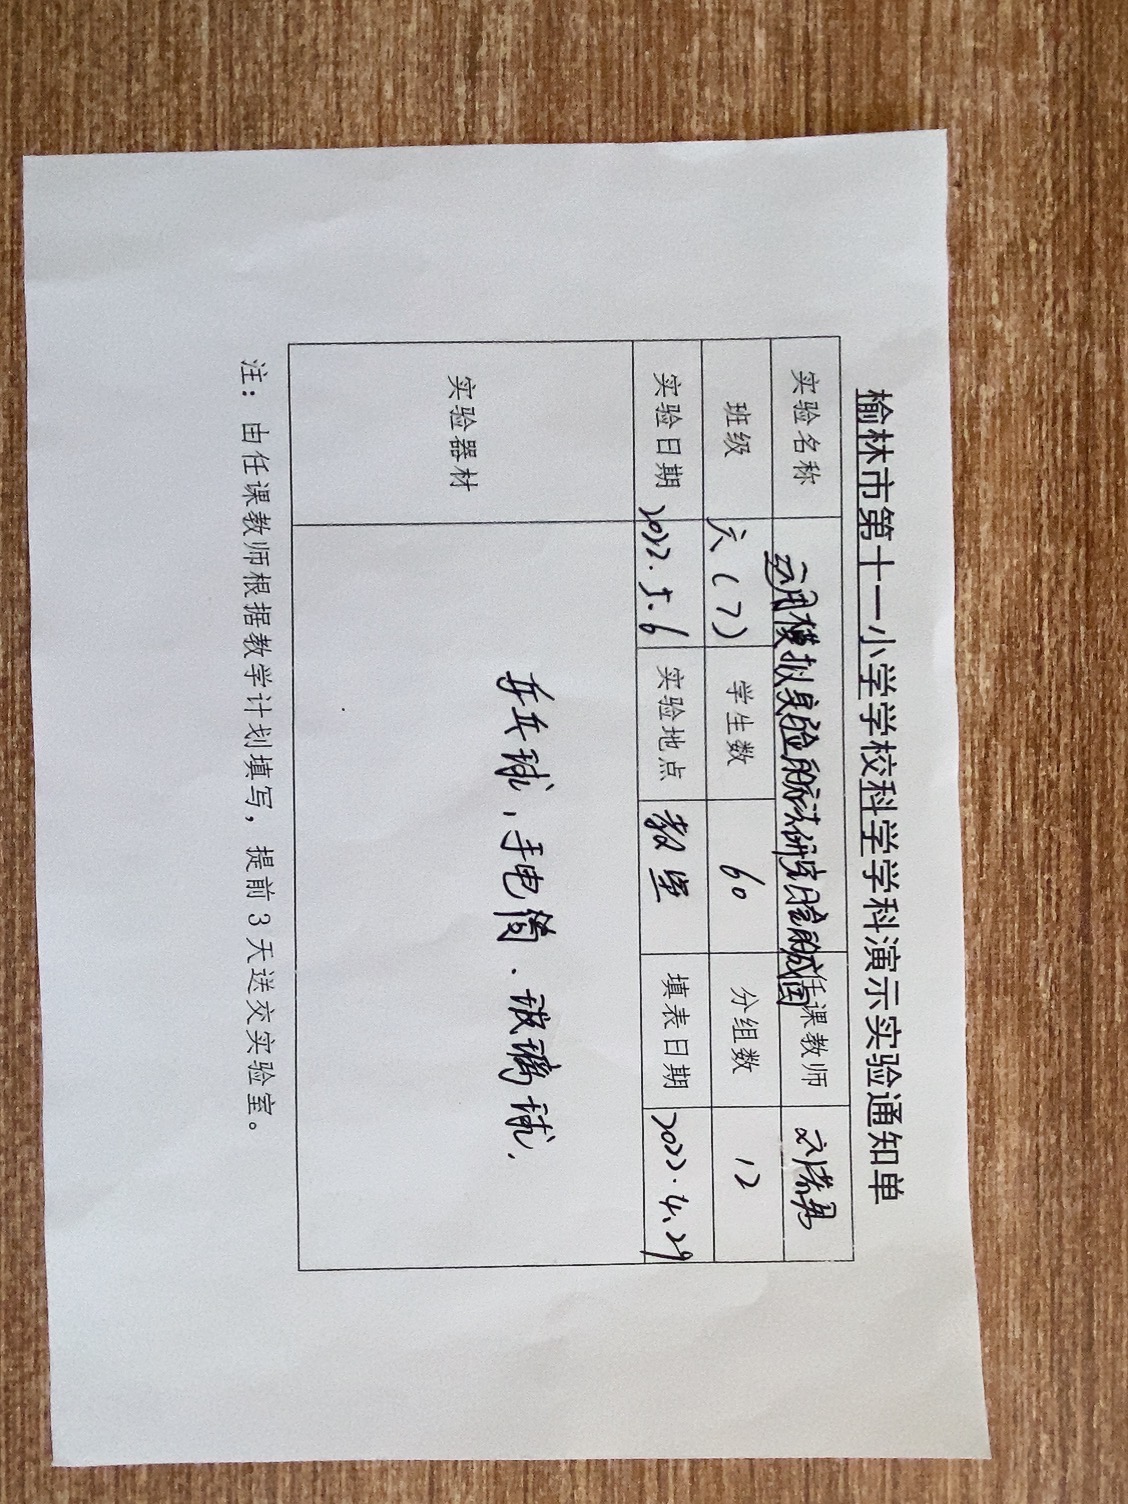 榆林市第十一小学学校科学学科演示实验通知单
实验名称 运用模拟实验的方法研究日食的成因 任课教师
班级 六（7） 学生数 60 分组数 12
实验日期 2022.5.6 实验地点 教室 填表日期 2022.4.29
实验器材 乒乓球，手电筒、玻璃球.
注：由任课教师根据教学计划填写，提前3天送交实验室。